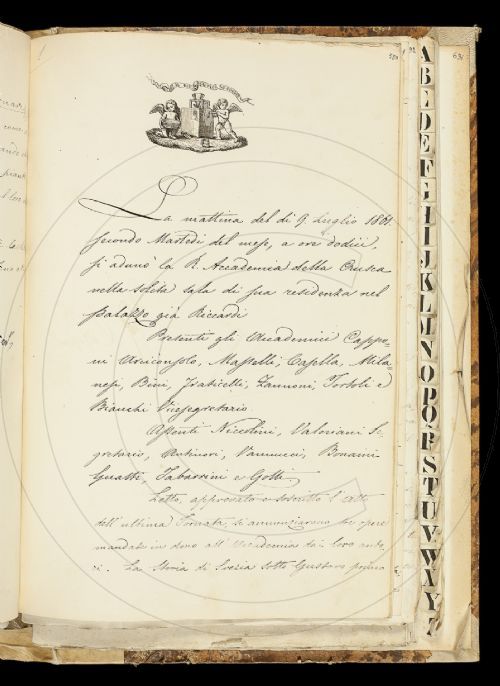 La mattina del dì 9. Luglio 1861.
secondo Martedì del mese, a ore dodici,
si adunò la R. Accademia della Crusca
nella solita sala di sua residenza nel
Palazzo già Riccardi
Presenti gli Accademici Cappo-
ni Arciconsolo, Masselli, Casella, Mila-
nesi, Bini, Zannoni, Tortoli e
Bianchi Vicesegretario
Assenti Niccolini, Valeriani Se-
gretario, Vannucci, Bonaini
Guasti, Tabarrini e Gotti
Letto, approvato e soscritto l'atto
dell'ultima Tornata, si annunziarono tre opere
mandate in dono all'Accademia da' loro auto-
ri. La Storia di Svezia sotto Gustavo primo
A
B
C
D
E
F
G
H
I
J
K
L
M
N
O
P
Q
R
S
T
U
V
W
X
Y
Z